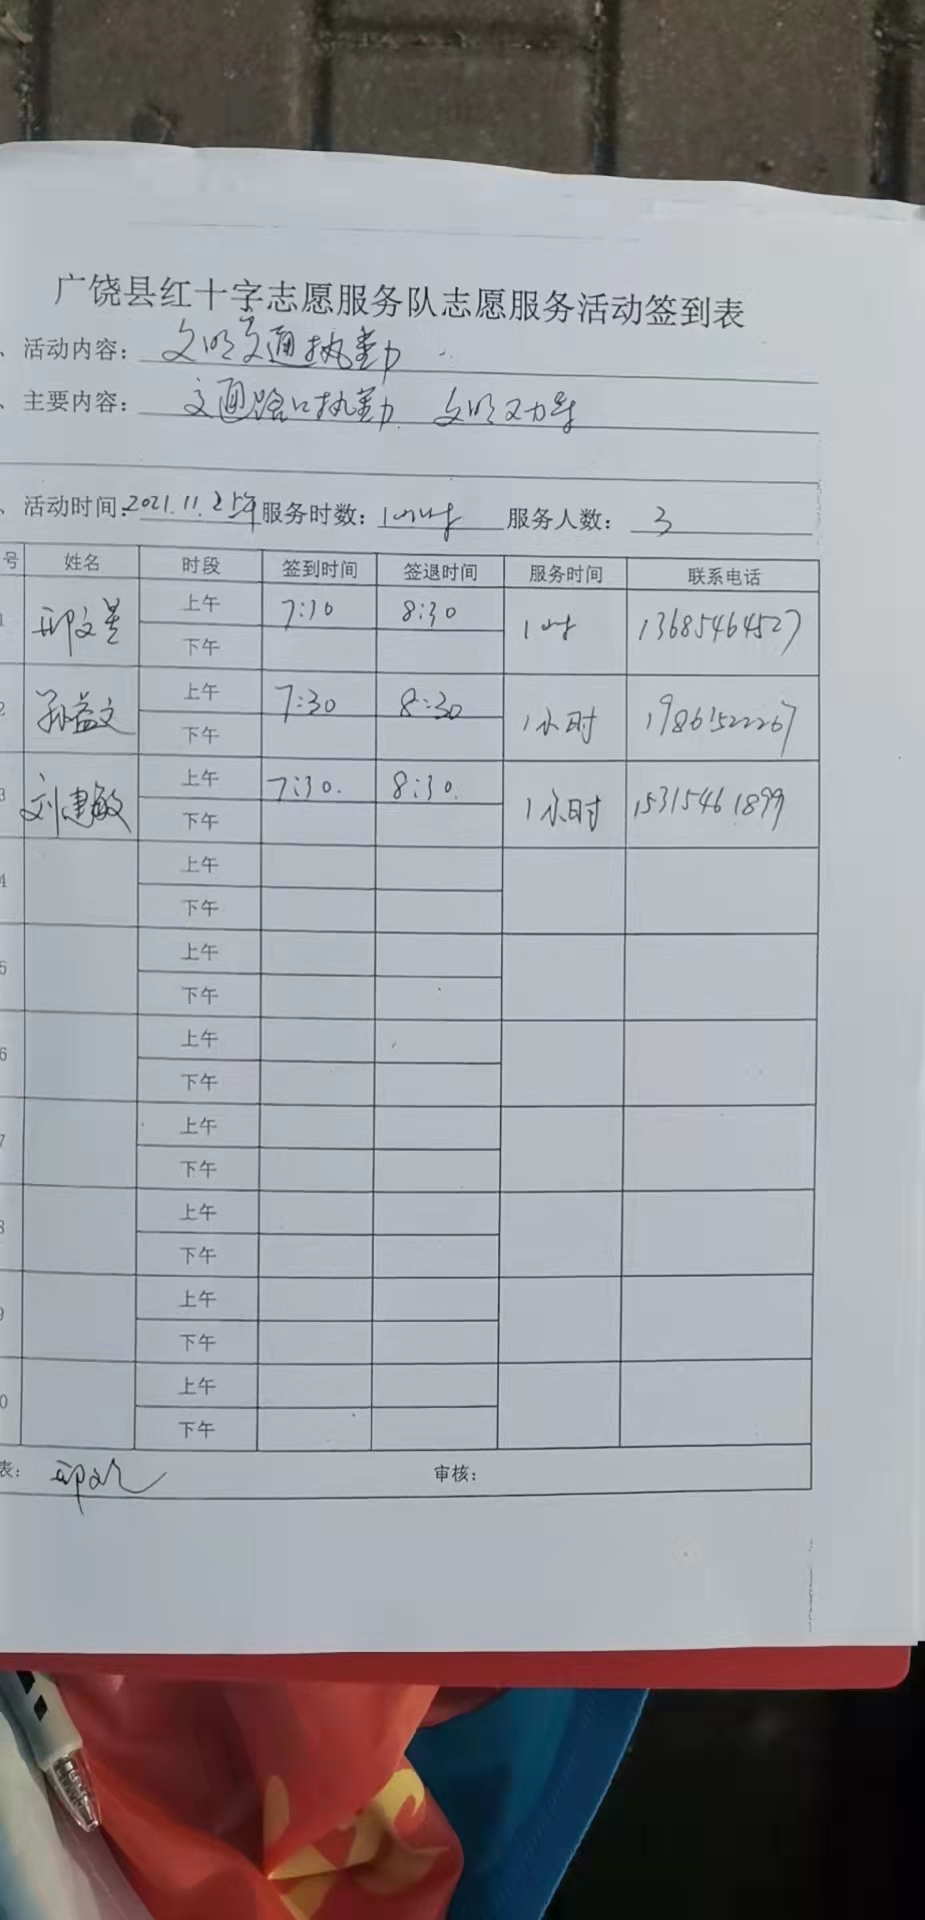 广饶县红十字志愿服务队志愿服务活动签到表
、活动内容：文明交通执勤
、主要内容：交通路口执勤 文明劝导
、活动时间：2021.11.2上午 服务时数：1小时 服务人数：3
号 姓名 时段 签到时间 签退时间 服务时间 联系电话
1 邱文 上午 7:30 8:30 1小时 13685464527
下午
2 孙益文 上午 7:30 8:30 1小时 19861522267
下午
3 刘建敏 上午 7:30. 8:30. 1小时 15315461899
下午
4 上午
下午
5 上午
下午
6 上午
下午
7 上午
下午
8 上午
下午
9 上午
下午
0 上午
下午
表： 邱文 审核：